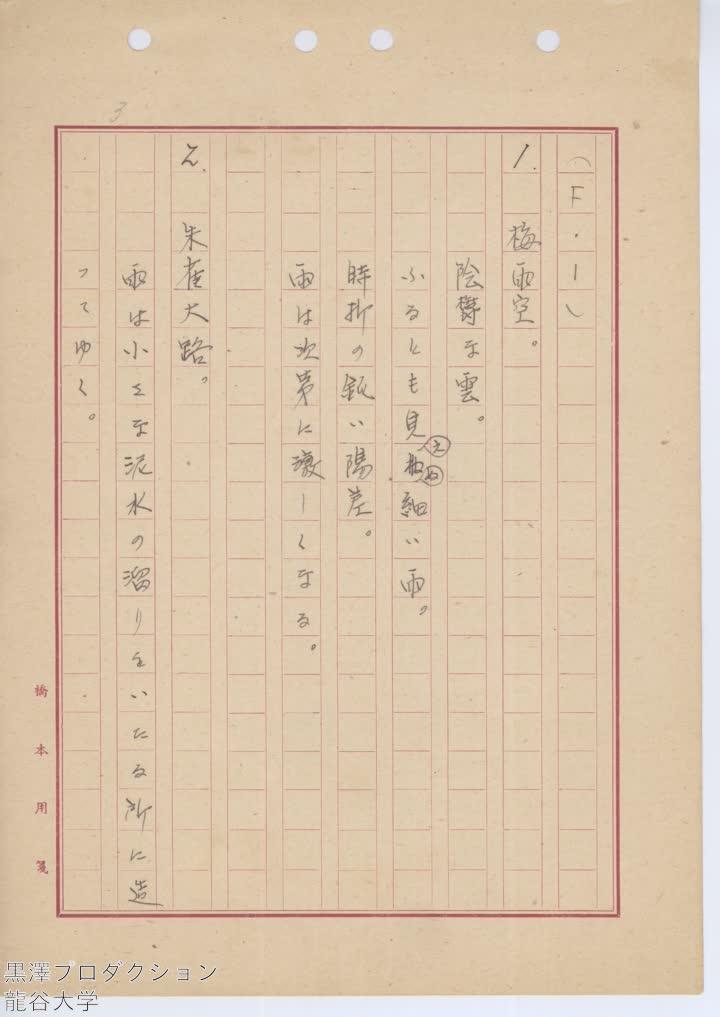 3
(F・1)
1. 梅雨空。
陰鬱な雲。
ふるとも見えぬ細い雨。
時折の鈍い陽差。
雨は次第に激しくなる。
2. 朱雀大路。
雨は小さな泥水の溜りをいたる所に造
ってゆく。
橋本用箋
黒澤プロダクション
龍谷大学